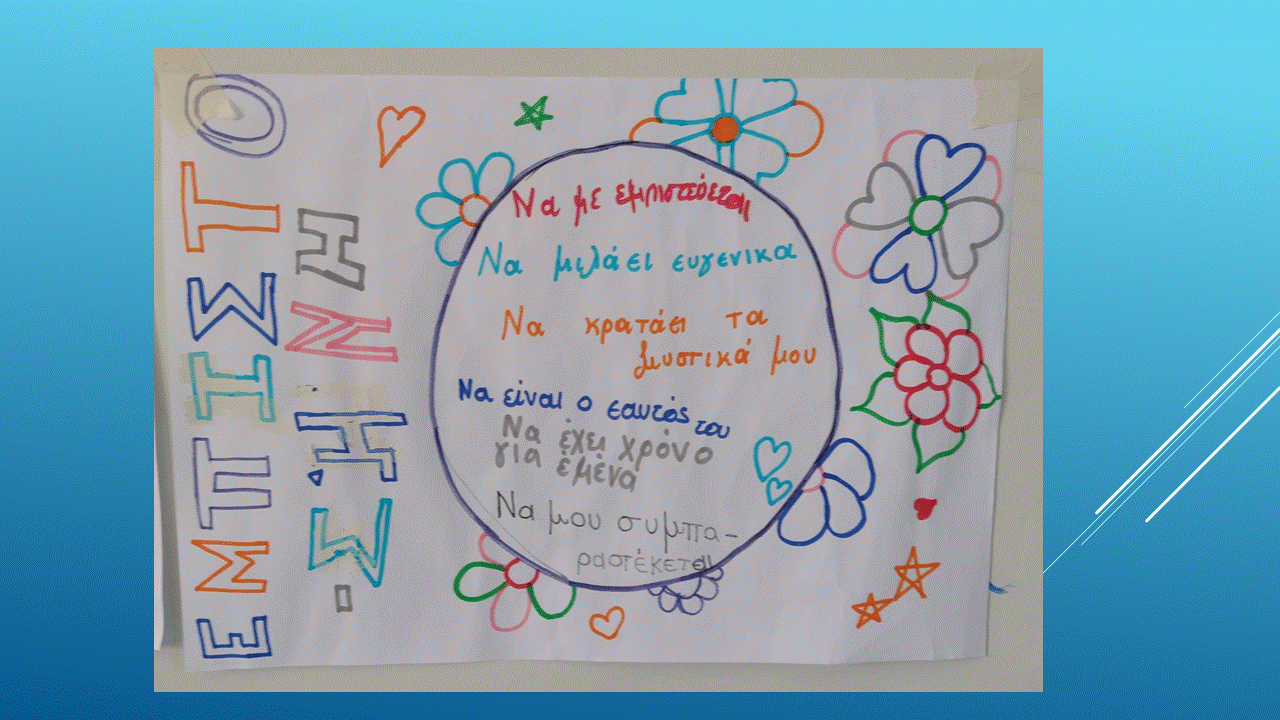 ΕΜΠΙΣΤΟ
-ΣΎΝΗ
Να με εμπιστεύεται
Να μιλάει ευγενικα
Να κρατάει τα
μυστικά μου
Να είναι ο εαυτός του
Να έχει χρόνο
για έμένα
Να μου συμπα-
ραστέκεται